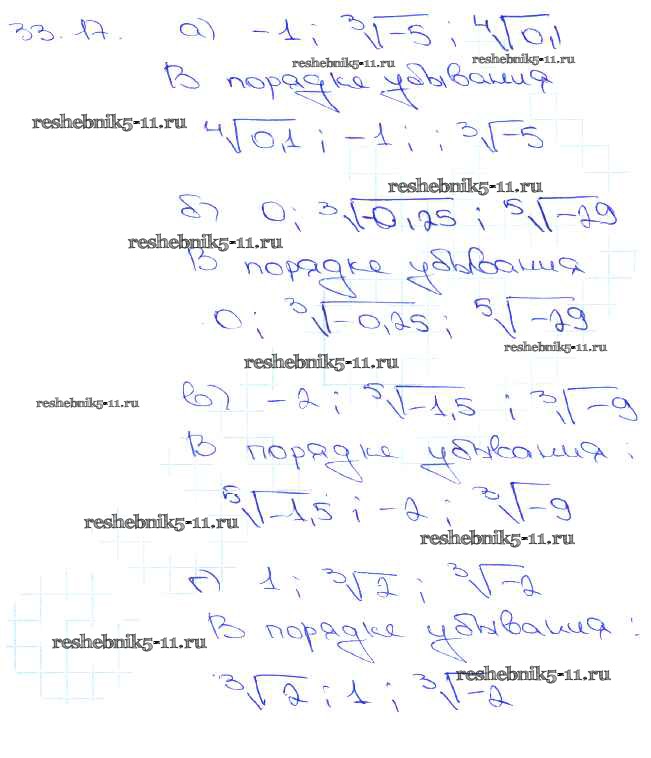 33.17. а) -1; ∛-5; ∜0,1
reshebnik5-11.ru reshebnik5-11.ru
В порядке убывания
reshebnik5-11.ru
∜0,1; -1; ; ∛-5
reshebnik5-11.ru
б) 0; ∛-0,25; ⁵√-29
reshebnik5-11.ru
В порядке убывания
0; ∛-0,25; ⁵√-29
reshebnik5-11.ru
reshebnik5-11.ru
reshebnik5-11.ru
в) -2; ⁵√-1,5; ∛-9
В порядке убывания:
⁵√-1,5; -2; ∛-9
reshebnik5-11.ru
reshebnik5-11.ru
г) 1; ∛2; ∛-2
В порядке убывания:
reshebnik5-11.ru
reshebnik5-11.ru
∛2; 1; ∛-2